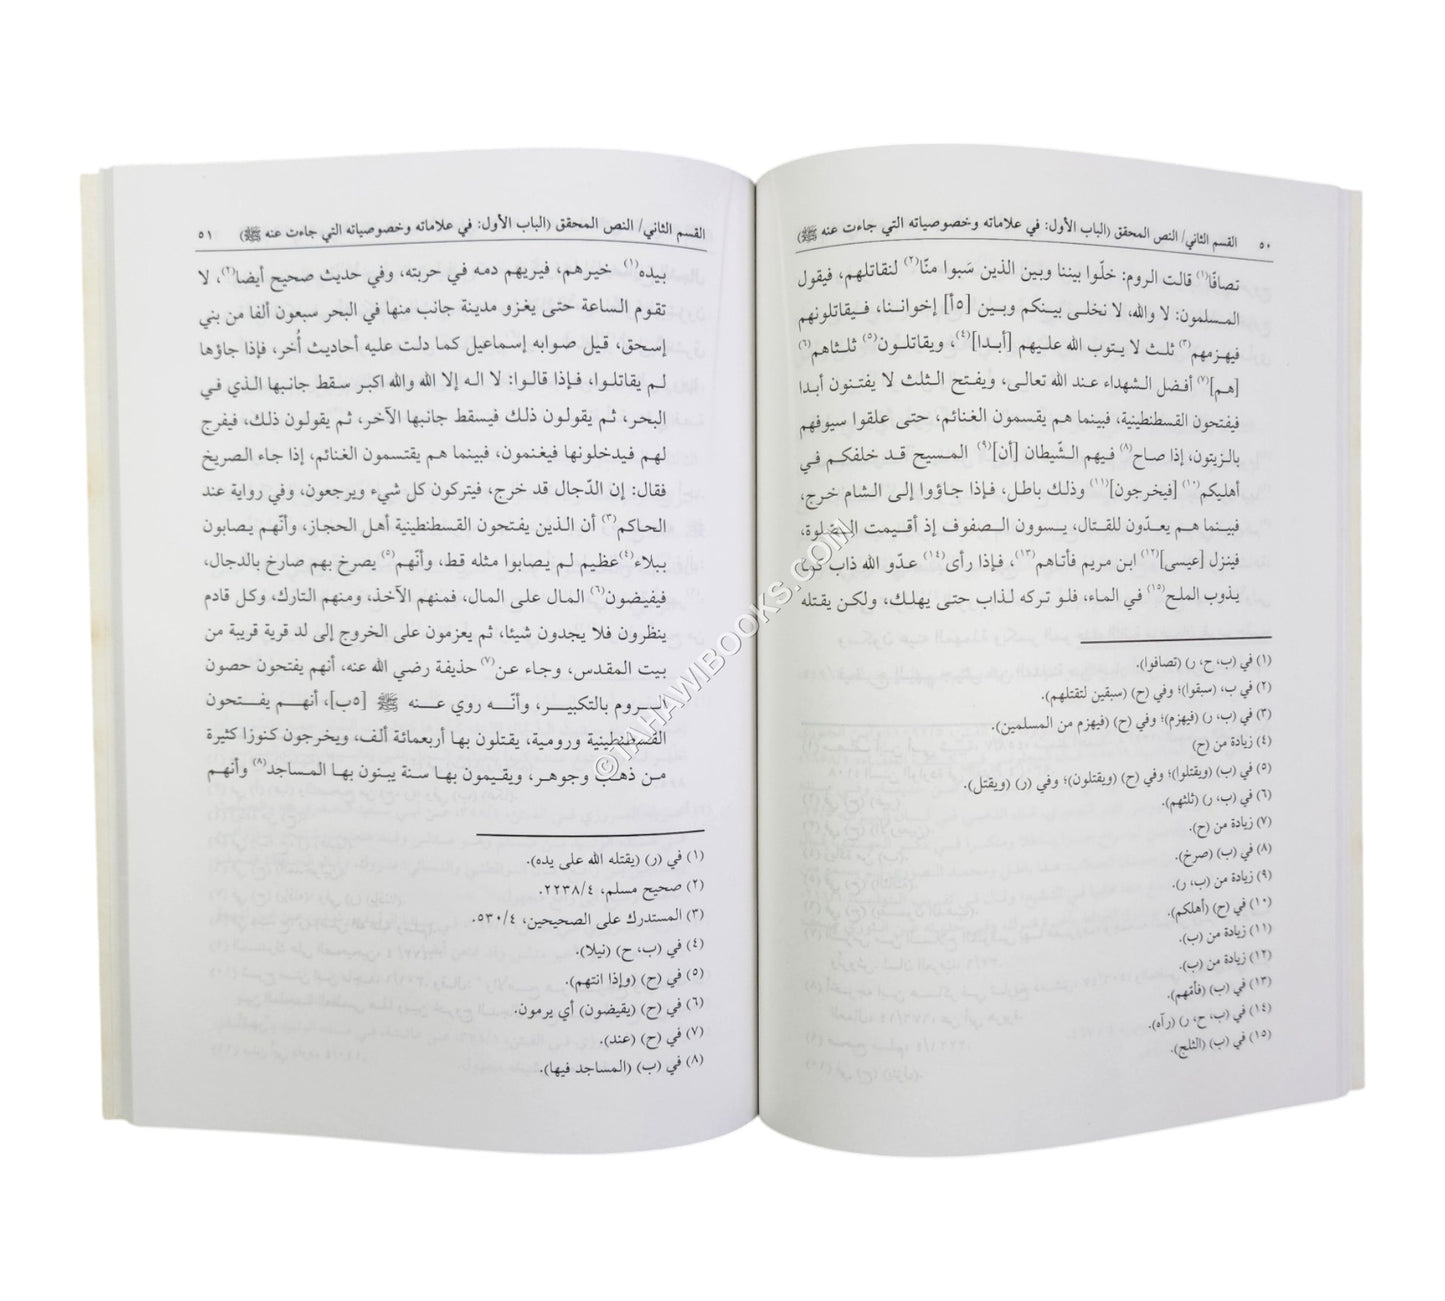 ٥٠ القسم الثاني/ النص المحقق (الباب الأول: في علاماته وخصوصياته التي جاءت عنه ﷺ)
تصافّا(١) قالت الروم: خلّوا بيننا وبين الذين سَبوا منّا(٢) لنقاتلهم، فيقول
المسلمون: لا والله، لا نخلى بينكم وبين [٥أ] إخواننا، فيقاتلونهم
فيهزمهم(٣) ثلث لا يتوب الله عليهم [أبدا](٤)، ويقاتلون(٥) ثلثاهم(٦)
[هم](٧) أفضل الشهداء عند الله تعالى، ويفتح الثلث لا يفتنون أبدا
فيفتحون القسطنطينية، فبينما هم يقسمون الغنائم، حتى علقوا سيوفهم
بالزيتون، إذا صاح(٨) فيهم الشّيطان [أن](٩) المسيح قد خلفكم في
أهليكم(١٠) [فيخرجون](١١) وذلك باطل، فإذا جاؤوا إلى الشام خرج،
فبينما هم يعدّون للقتال، يسوون الصفوف إذ أقيمت الصّلوة،
فينزل [عيسى](١٢) ابن مريم فأتاهم(١٣)، فإذا رأى(١٤) عدّو الله ذاب كما
يذوب الملح(١٥) في الماء، فلو تركه لذاب حتى يهلك، ولكن يقتله
(١) في (ب، ح، ر) (تصافوا).
(٢) في ب، (سبقوا)؛ وفي (ح) (سبقين لتقتلهم).
(٣) في (ب، ر) (فيهزم)؛ وفي (ح) (فيهزم من المسلمين).
(٤) زيادة من (ح)
(٥) في (ب) (ويقتلوا)؛ وفي (ح) (ويقتلون)؛ وفي (ر) (ويقتل).
(٦) في (ب، ر) (ثلثهم).
(٧) زيادة من (ح).
(٨) في (ب) (صرخ).
(٩) زيادة من (ب، ر).
(١٠) في (ح) (أهلكم).
(١١) زيادة من (ب).
(١٢) زيادة من (ب).
(١٣) في (ب) (فأقهم).
(١٤) في (ب، ح، ر) (رآه).
(١٥) في (ب) (الثلج).
القسم الثاني/ النص المحقق (الباب الأول: في علاماته وخصوصياته التي جاءت عنه ﷺ) ٥١
بيده(١) خيرهم، فيريهم دمه في حربته، وفي حديث صحيح أيضا(٢)، لا
تقوم الساعة حتى يغزو مدينة جانب منها في البحر سبعون ألفا من بني
إسحق، قيل صوابه إسماعيل كما دلت عليه أحاديث أُخر، فإذا جاؤها
لم يقاتلوا، فإذا قالوا: لا اله إلا الله والله اكبر سقط جانبها الذي في
البحر، ثم يقولون ذلك فيسقط جانبها الآخر، ثم يقولون ذلك، فيفرج
لهم فيدخلونها فيغنمون، فبينما هم يقتسمون الغنائم، إذا جاء الصريخ
فقال: إن الدّجال قد خرج، فيتركون كل شيء ويرجعون، وفي رواية عند
الحاكم(٣) أن الذين يفتحون القسطنطينية أهل الحجاز، وأنّهم يصابون
ببلاء(٤)عظيم لم يصابوا مثله قط، وأنّهم(٥) يصرخ بهم صارخ بالدجال،
فيفيضون(٦) المال على المال، فمنهم الآخذ، ومنهم التارك، وكل قادم
ينظرون فلا يجدون شيئا، ثم يعزمون على الخروج إلى لد قرية قريبة من
بيت المقدس، وجاء عن(٧) حذيفة رضي الله عنه، أنهم يفتحون حصون
الروم بالتكبير، وأنّه روي عنه ﷺ [٥ب]، أنهم يفتحون
القسطنطينية ورومية، يقتلون بها أربعمائة ألف، ويخرجون كنوزا كثيرة
من ذهب وجوهر، ويقيمون بها سنة يبنون بها المساجد(٨) وأنهم
(١) في (ر) (يقتله الله على يده).
(٢) صحيح مسلم، ٢٢٣٨/٤.
(٣) المستدرك على الصحيحين، ٥٣٠/٤.
(٤) في (ب، ح) (نيلا).
(٥) في (ح) (وإذا انتهم).
(٦) في (ح) (يقيضون) أي يرمون.
(٧) في (ح) (عند).
(٨) في (ب) (المساجد فيها).
©TAHAWIBOOKS.COM